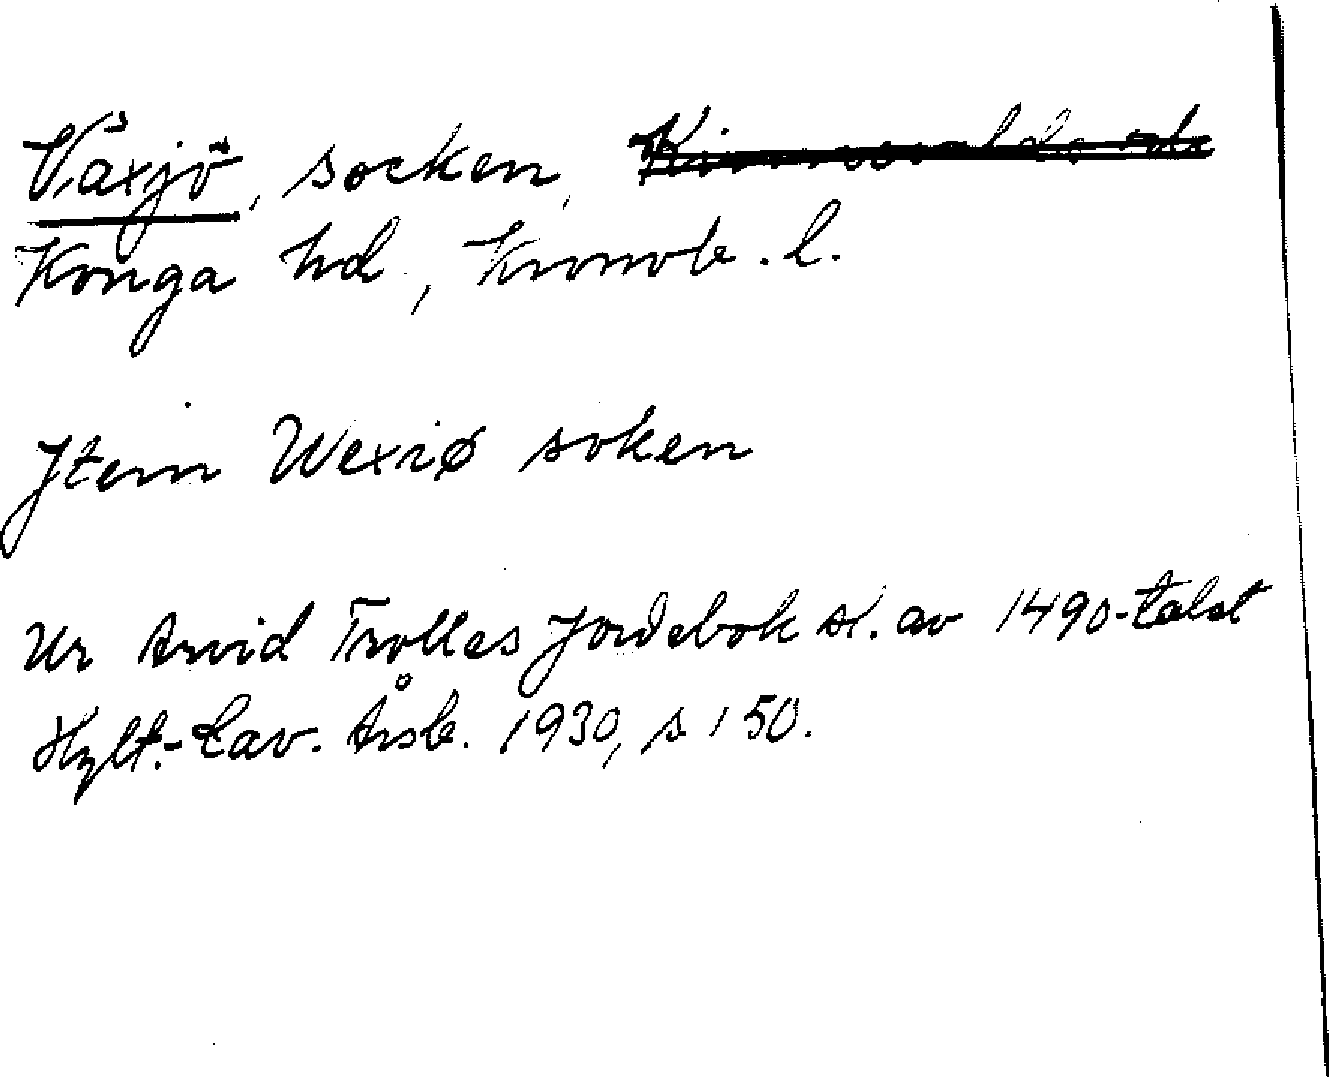 Växjö, socken, Kinnevalds hd
Konga hd, Kronob. l.
Jtem Wexiø soken
Ur Arvid Trolles Jordebok sl. av 1490-talet
Hylt.-Cav. Årsb. 1930, s 150.